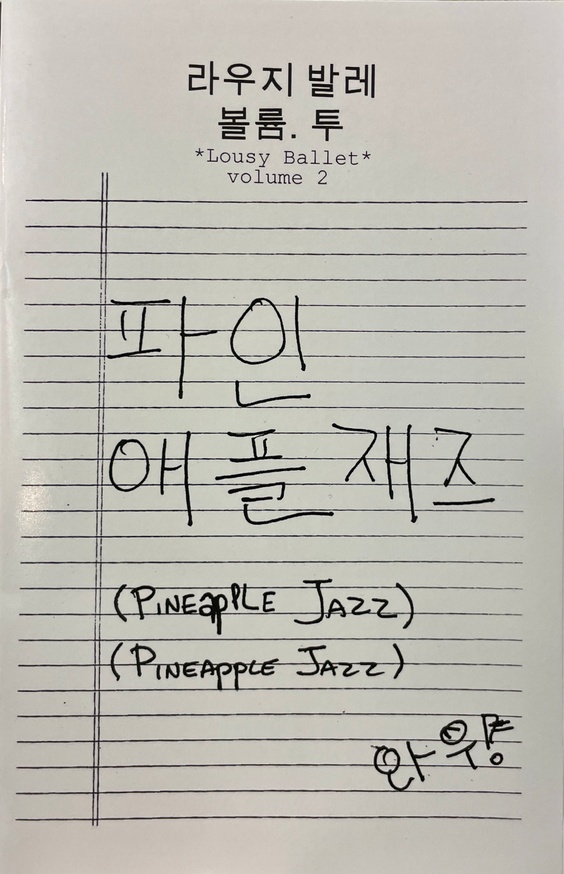 라우지 발레
볼륨. 투
*Lousy Ballet*
volume 2
파인
애플 재즈
(PINEapplE JAZZ)
(PINEAPPLE JAZZ)